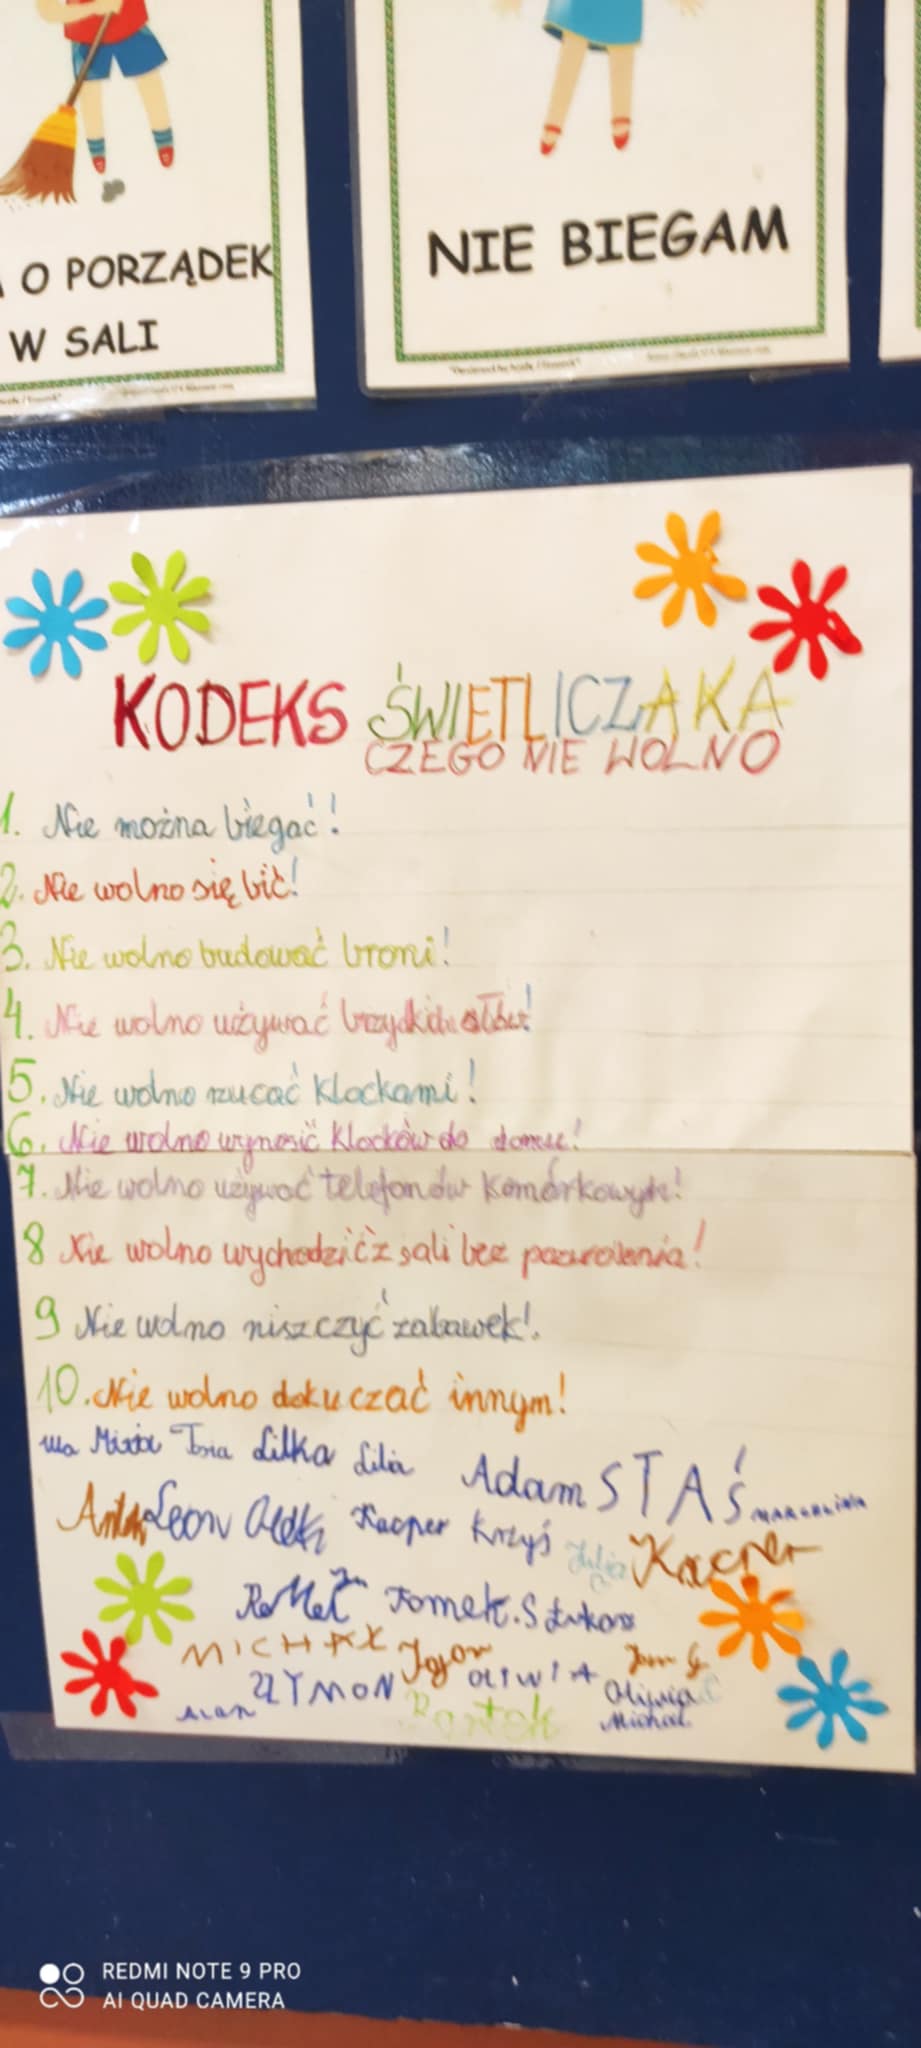 O PORZĄDEK
W SALI
NIE BIEGAM
KODEKS ŚWIETLICZAKA
CZEGO NIE WOLNO
1. Nie można biegać!
2. Nie wolno się bić!
3. Nie wolno budować broni!
4. Nie wolno używać brzydkich słów!
5. Nie wolno rzucać klockami!
6. Nie wolno wynosić klocków do domu!
7. Nie wolno używać telefonów komórkowych!
8 Nie wolno wychodzić z sali bez pozwolenia!
9 Nie wolno niszczyć zabawek!
10. Nie wolno dokuczać innym!
Tosia Lilka Lilia Adam STAŚ MARCELINA
Leon Kacper Krzyś Julia Kacper
Tomek.S Łukasz
MICHAŁ Igor OLIWIA Jan G
ALAN ZYMON Bartek Oliwia C
Michał
REDMI NOTE 9 PRO
AI QUAD CAMERA